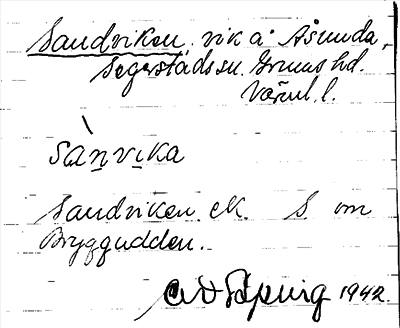 Sandviken. vik a Åsunda,
Segerstads sn. Grums hd.
Värml. l.
sànvika
Sandviken. ek. S om
Bryggudden.
1942.